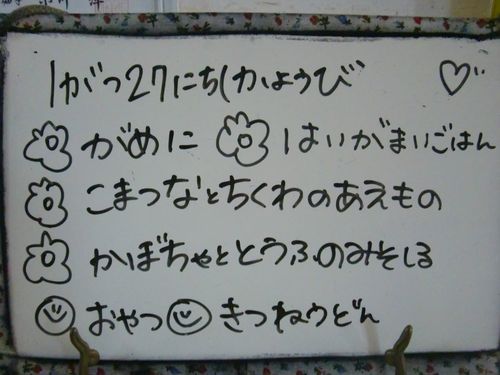 1がつ27にちかようび
がめに はいがまいごはん
こまつなとちくわのあえもの
かぼちゃととうふのみそしる
おやつ きつねうどん